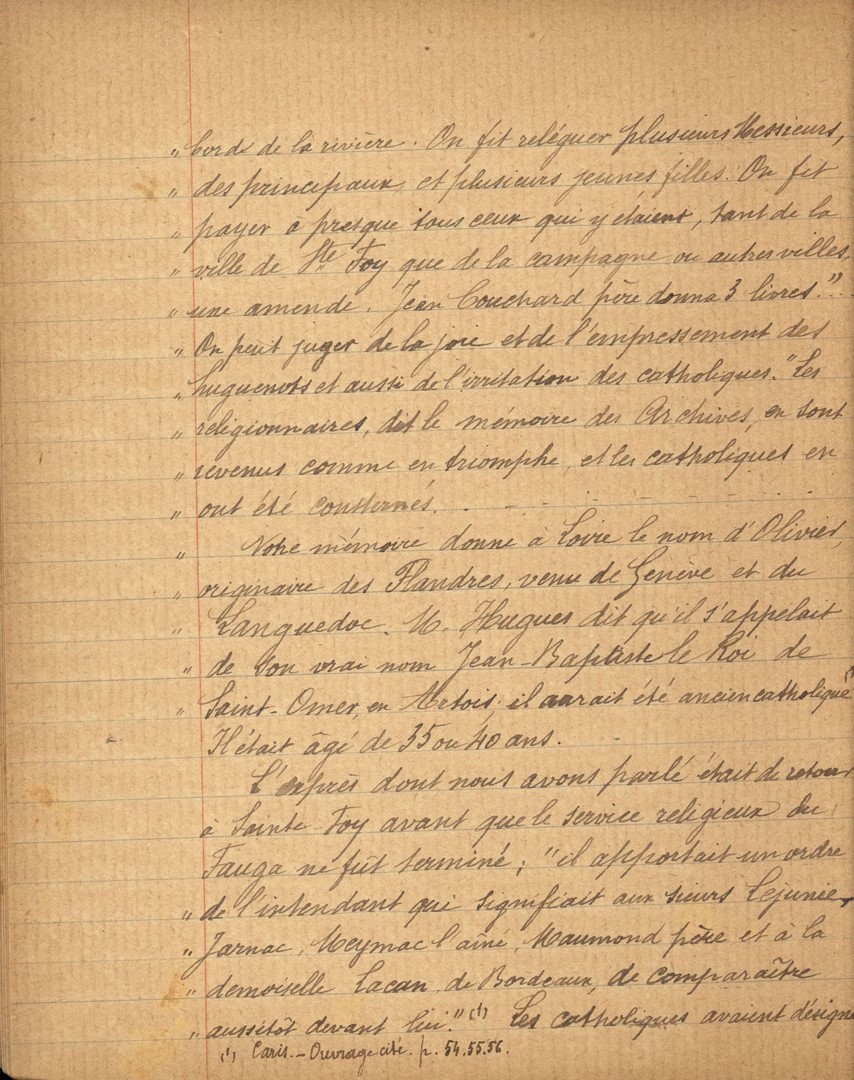 „ bord de la rivière. On fit reléguer plusieurs Messieurs,
„ des principaux, et plusieurs jeunes filles. On fit
„ payer à presque tous ceux qui y étaient, tant de la
„ ville de Ste Foy que de la campagne ou autres villes,
„ une amende. Jean Couchard père donna 3 livres."
„ On peut juger de la joie et de l'empressement des
„ huguenots et aussi de l'irritation des catholiques. "Les
„ religionnaires, dit le mémoire des Archives, en sont
„ revenus comme en triomphe, et les catholiques en
„ ont été consternés.
„ Notre mémoire donne à Loire le nom d'Olivier,
„ originaire des Flandres, venu de Genève et du
„ Languedoc. M. Hugues dit qu'il s'appelait
„ de son vrai nom Jean-Baptiste le Roi de
„ Saint-Omer, en Artois; il aurait été ancien catholique
Il était âgé de 35 ou 40 ans.
L'exprès dont nous avons parlé était de retour
à Sainte Foy avant que le service religieux du
Fauga ne fût terminé; "il apportait un ordre
„ de l'intendant qui signifiait aux sieurs Lejunie,
„ Jarnac, Meymac l'aîné, Maumond père et à la
„ demoiselle Lacan, de Bordeaux, de comparaître
„ aussitôt devant lui."(1) Les catholiques avaient désigné
(1) Caris. - Ouvrage cité. p. 54.55.56.